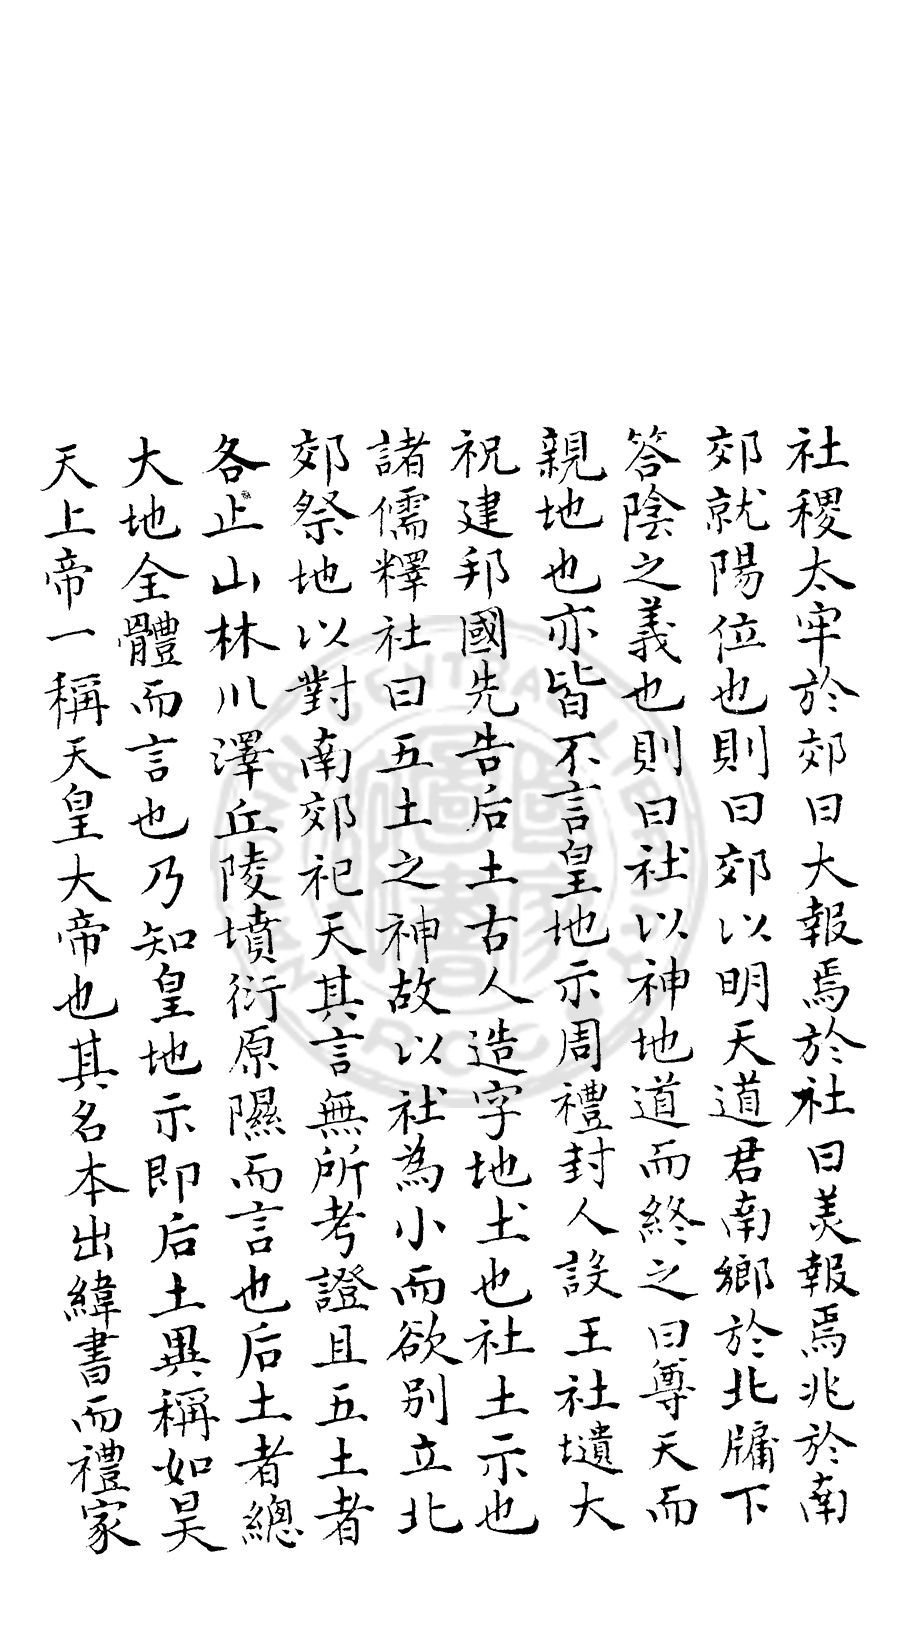 社稷太牢於郊曰大報焉於社曰美報焉兆於南
郊就陽位也則曰郊以明天道君南鄉於北牗下
答陰之義也則曰社以神地道而終之曰尊天而
親地也亦皆不言皇地示周禮封人設王社壝大
祝建邦國先告后土古人造字地土也社土示也
諸儒釋社曰五土之神故以社為小而欲別立北
郊祭地以對南郊祀天其言無所考證且五土者
各止山林川澤丘陵墳衍原隰而言也后土者總
大地全體而言也乃知皇地示即后土異稱如昊
天上帝一稱天皇大帝也其名本出緯書而禮家